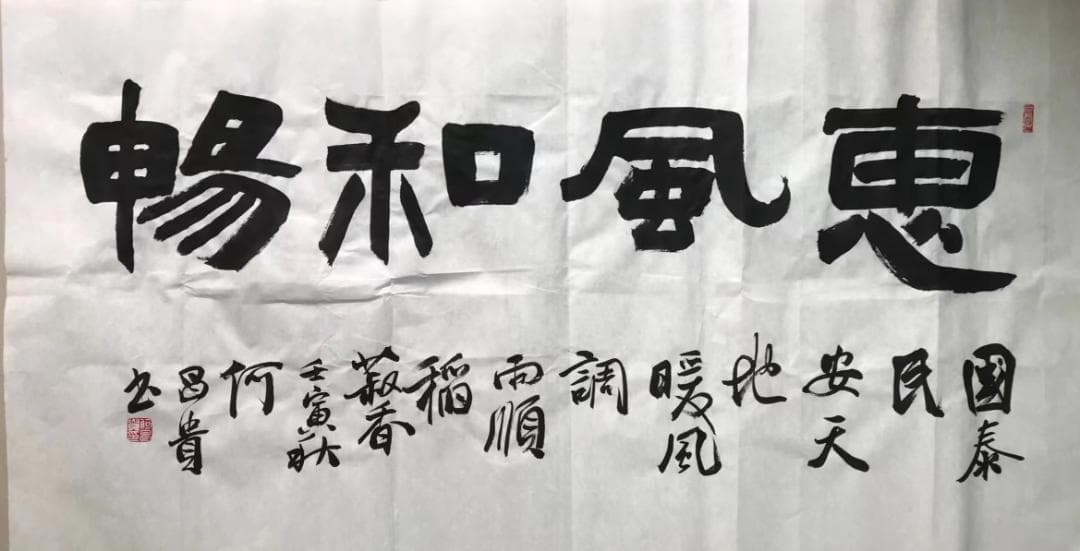 惠風和暢
國泰
民
安天
地
暖風
調
雨順
稻
菽香
壬寅秋
何
昌貴
书